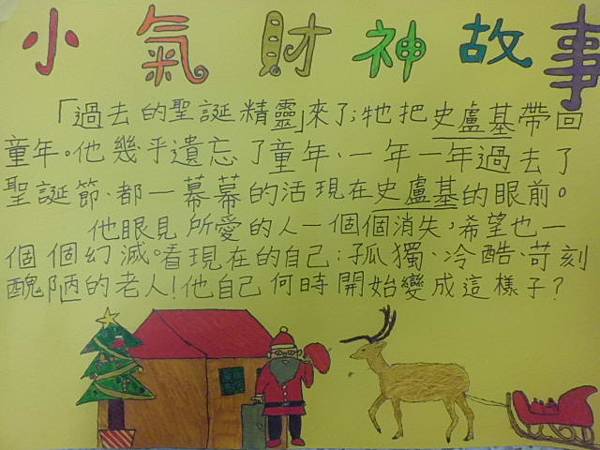 小氣財神故事
「過去的聖誕精靈」來了;牠把史盧基帶回
童年。他幾乎遺忘了童年、一年一年過去了
聖誕節、都一幕幕的活現在史盧基的眼前。
他眼見所愛的人一個個消失,希望也一
個個幻滅。看現在的自己:孤獨、冷酷、苛刻
醜陋的老人!他自己何時開始變成這樣子?